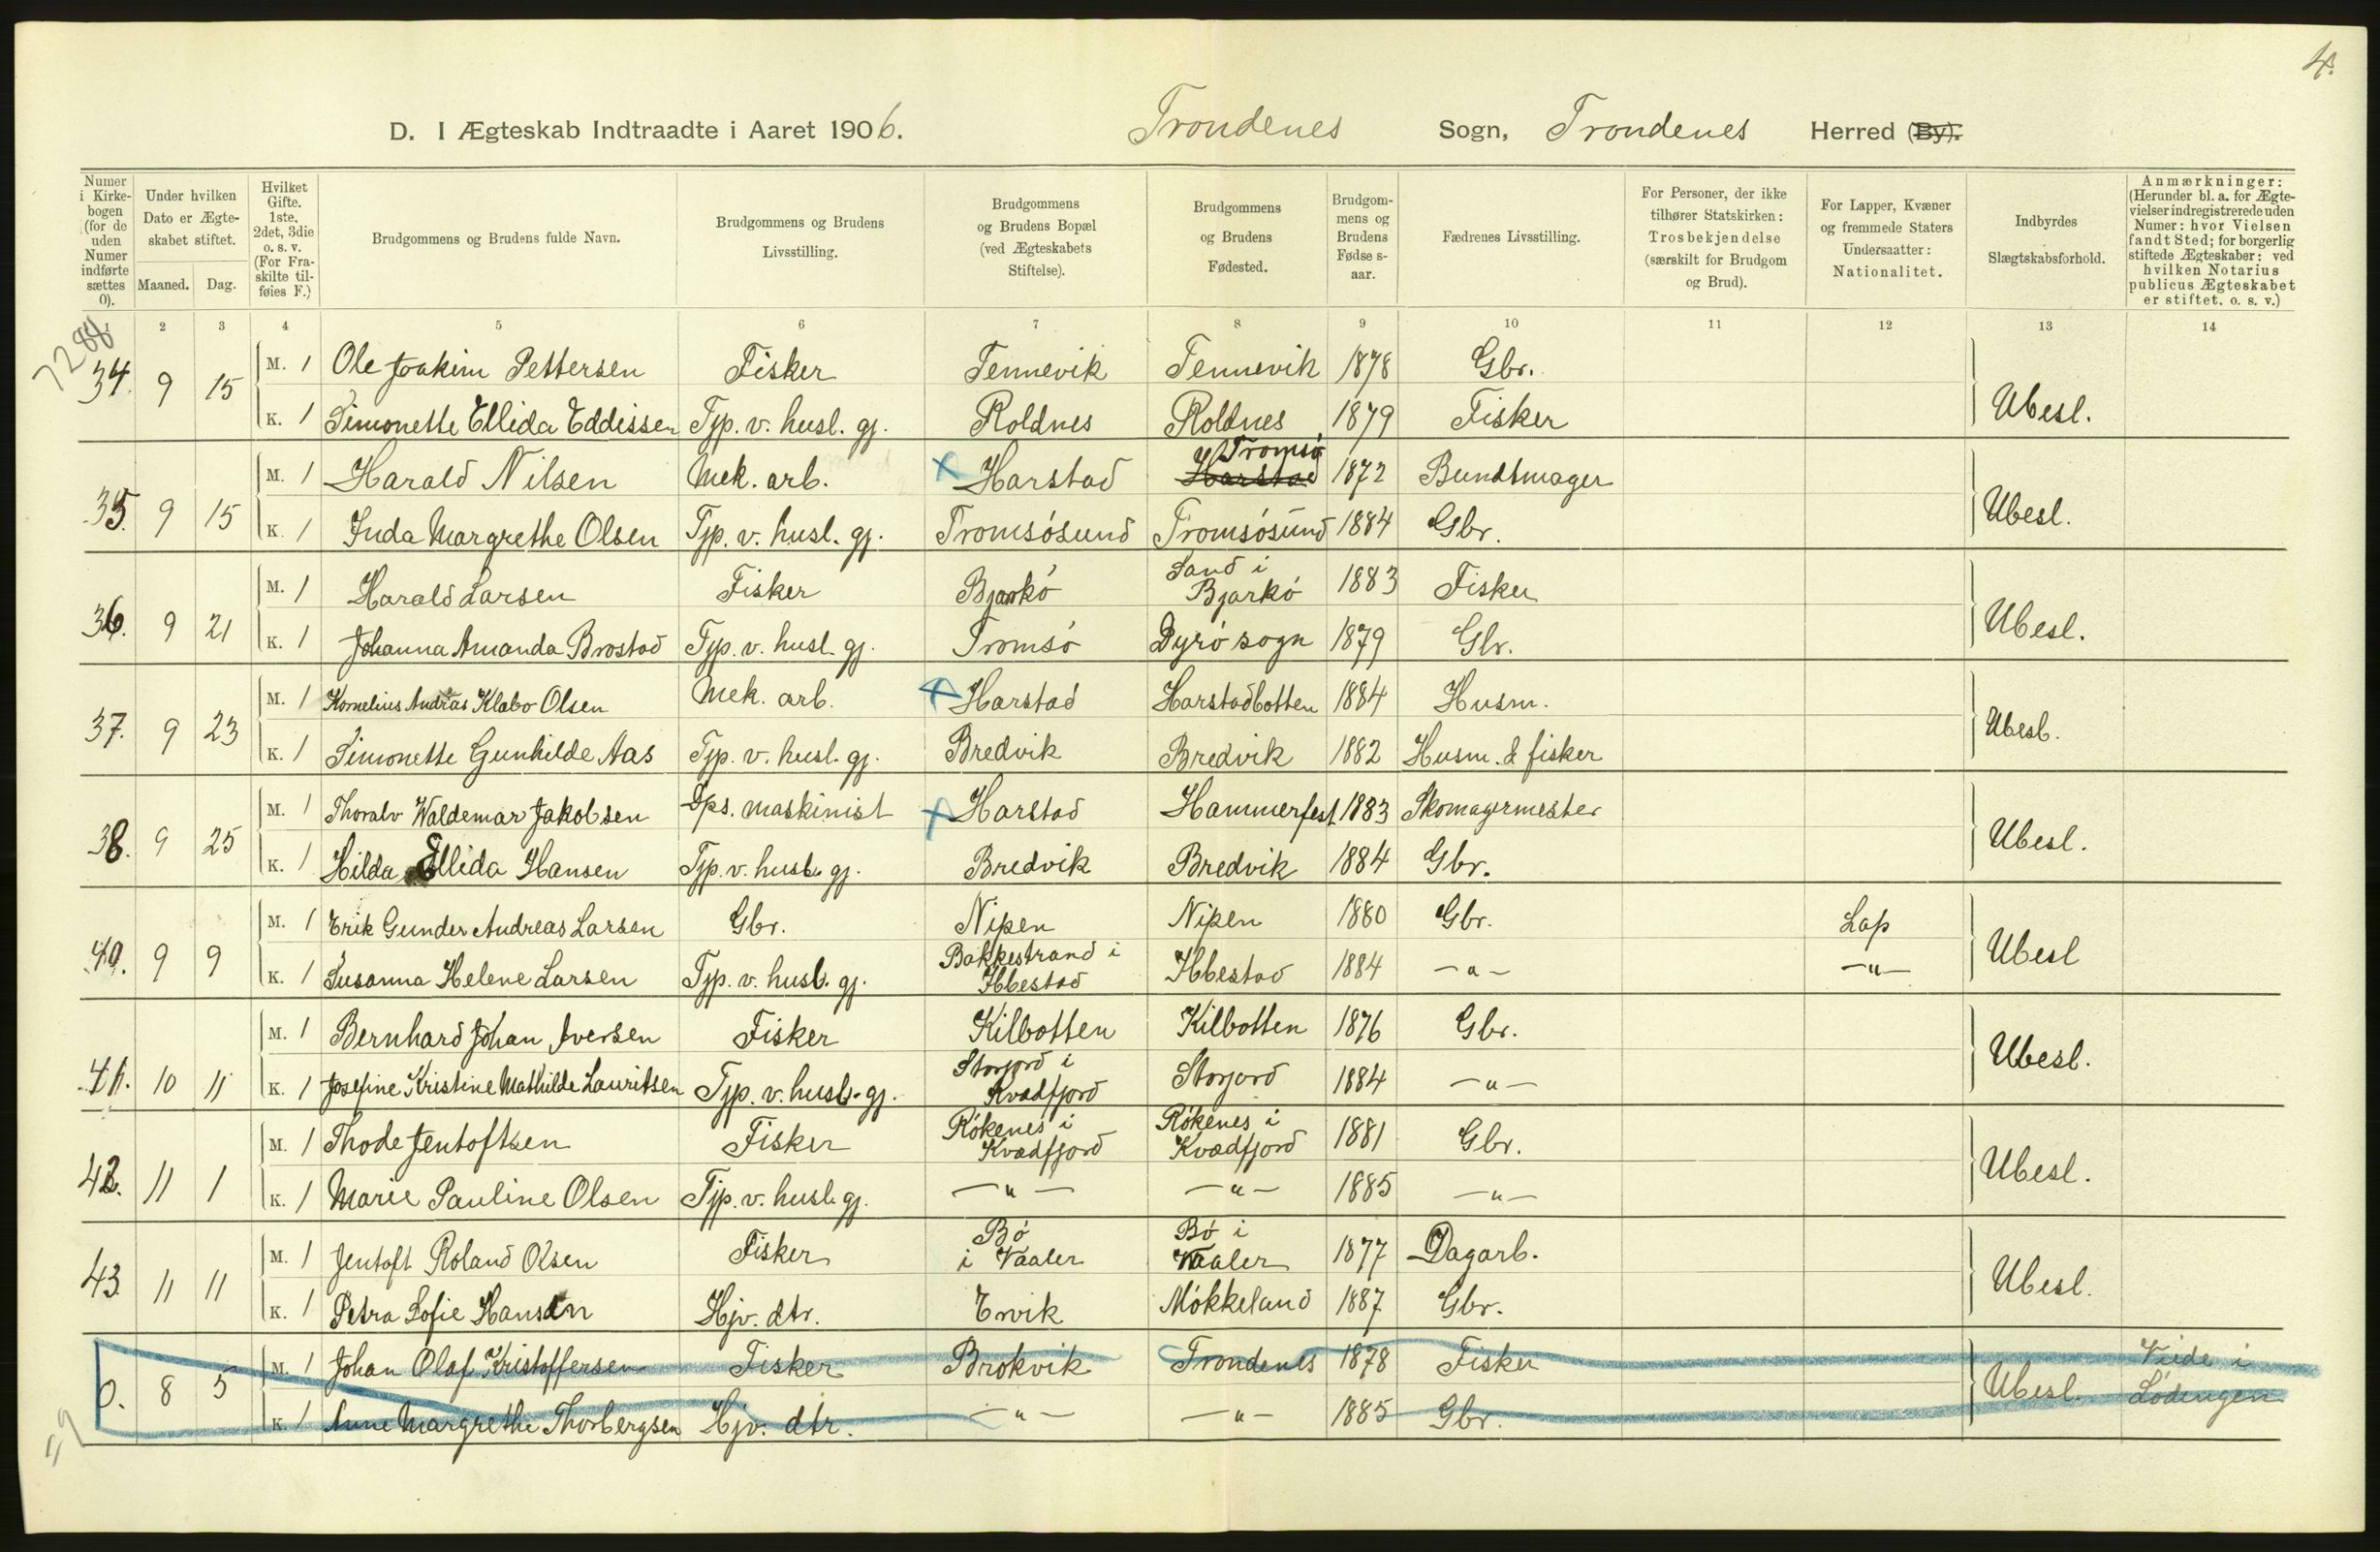 4.
D. I Ægteskab Indtraadte i Aaret 1906. Trondenes Sogn, Trondenes Herred (By).
Numer i Kirkebogen (for de uden Numer indførte sættes 0).
Under hvilken Dato er Ægteskabet stiftet.
Maaned. Dag.
Hvilket Gifte. 1ste, 2det, 3die o. s. v. (For Fraskilte tilføies F.)
Brudgommens og Brudens fulde Navn.
Brudgommens og Brudens Livsstilling.
Brudgommens og Brudens Bopæl (ved Ægteskabets Stiftelse).
Brudgommens og Brudens Fødested.
Brudgommens og Brudens Fødse s-aar.
Fædrenes Livsstilling.
For Personer, der ikke tilhører Statskirken: Trosbekjendelse (særskilt for Brudgom og Brud).
For Lapper, Kvæner og fremmede Staters Undersaatter: Nationalitet.
Indbyrdes Slægtskabsforhold.
Anmærkninger: (Herunder bl. a. for Ægtevielser indregistrerede uden Numer: hvor Vielsen fandt Sted; for borgerlig stiftede Ægteskaber: ved hvilken Notarius publicus Ægteskabet er stiftet. o. s. v.)
2 3 4 5 6 7 8 9 10 11 12 13 14
7288
34. 9 15 M. 1 Ole Joakim Pettersen Fisker Tennevik Tennevik 1878 Gbr. Ubesl.
K. 1 Simonette Ellida Eddissen Tjp. v. husl. gj. Roldnes Roldnes 1879 Fisker
35. 9 15 M. 1 Harald Nilsen Mek. arb. x Harstad Harstad Tromsó 1872 Bundtmager Ubesl.
K. 1 Inda Margrethe Olsen Tjp. v. husl. gj. Tromsósund Tromsósund 1884 Gbr.
36. 9 21 M. 1 Harald Larsen Fisker Bjarkó Sand i Bjarkó 1883 Fisker Ubesl.
K. 1 Johanna Amanda Brostad Tjp. v. husl. gj. Tromsó Dyró sogn 1879 Gbr.
37. 9 23 M. 1 Kornelius Andras Klabo Olsen Mek. arb. x Harstad Harstadbotten 1884 Husm. Ubesl.
K. 1 Simonette Gunhilde Aas Tjp. v. husl. gj. Bredvik Bredvik 1882 Husm. & fisker
38. 9 25 M. 1 Thoralv Waldemar Jakobsen Dps. maskinist x Harstad Hammerfest 1883 Skomagermester Ubesl.
K. 1 Hilda Ellida Hansen Tjp. v. husl. gj. Bredvik Bredvik 1884 Gbr.
40. 9 9 M. 1 Erik Gunder Andreas Larsen Gbr. Nipen Nipen 1880 Gbr. Lap Ubesl
K. 1 Susanna Helene Larsen Tjp. v. husl. gj. Bakkestrand i Ibbestad Ibbestad 1884 —"— —"—
41. 10 11 M. 1 Bernhard Johan Iversen Fisker Kilbotten Kilbotten 1876 Gbr. Ubesl.
K. 1 Josefine Kristine Mathilde Lauritsen Tjp. v. husl. gj. Storjord i Kvædfjord Storjord 1884 —"—
42. 11 1 M. 1 Thode Jentoftsen Fisker Rókenes i Kvædfjord Rókenes i Kvædfjord 1881 Gbr. Ubesl.
K. 1 Marie Pauline Olsen Tjp. v. husl. gj. —"— —"— 1885 —"—
43. 11 11 M. 1 Jentoft Roland Olsen Fisker Bó i Vaaler Bó i Vaaler 1877 Dagarb. Ubesl.
K. 1 Petra Sofie Hansen Hjv. dtr. Ervik Mókkeland 1887 Gbr.
0. 8 5 M. 1 Johan Olaf Kristoffersen Fisker Brokvik Trondenes 1878 Fisker Ubesl. Viede i Lódingen
K. 1 Anne Margrethe Thorbergsen Hjv. dtr. —"— —"— 1885 Gbr.